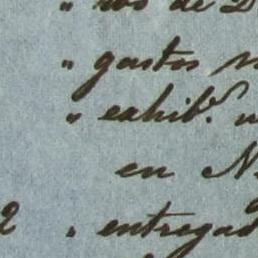 " ros de D
" gastos
" exhib.ⁿ
en N
2 " entregad